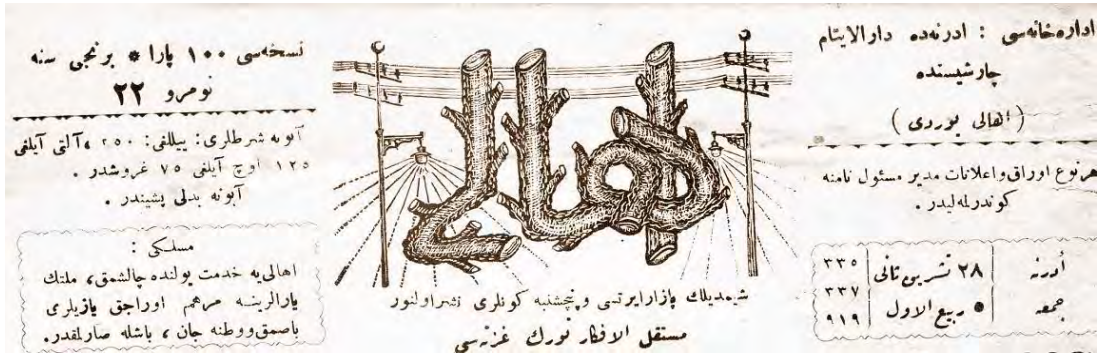 اداره‌خانه‌سی : ادرنه‌ده دارالایتام
چارشیسنده
(اهالی یوردی)
هر نوع اوراق و اعلانات مدیر مسئول نامنه
کوندرلمه‌لیدر .
ادرنه
جمعه
۲۸ تشرین ثانی
● ربیع الاول
۳۳۵
۳۳۷
۹۱۹
اهالی
شیمدیلك پازارایرتسی و پنجشنبه کونلری نشر اولنور
مستقل الافکار تورك غزته‌سی
نسخه‌سی ۱۰۰ پارا * برنجی سنه
نومرو ۲۲
آبونه شرطلری: ییللغی: ۲۵۰ ، آلتی آیلغی
۱۲۵ اوچ آیلغی ۷۵ غروشدر .
آبونه بدلی پشیندر .
مسلکی :
اهالی‌یه خدمت یولنده چالشمق، ملتك
یارالرینه مرهم اوراجق یازیلری
باصمق و وطنه جان ، باشله صارلمقدر.